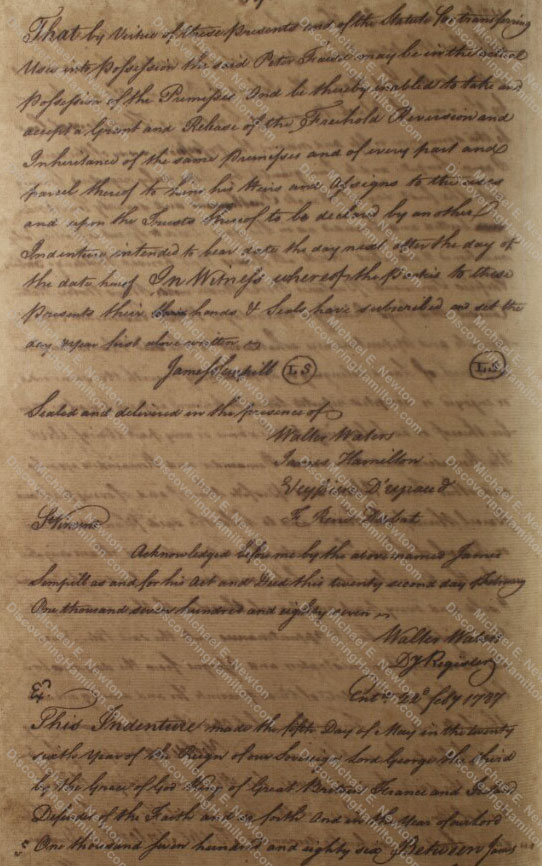 That by Virtue of these presents and of the Statute for transferring
Uses into possession the said Peter may be in the actual
possession of the Premises And be thereby enabled to take and
accept a Grant and Release of the Freehold Reversion and
Inheritance of the same premises and of every part and
parcel thereof to him his Heirs and Assigns to the uses
and upon the Trusts thereof to be declared by another
Indenture intended to bear date the day next after the day of
the date hereof In Witness whereof the parties to these
presents their hands & Seals have subscribed and set the
day & year first above written
James Sempill L.S L.S
Sealed and delivered in the presence of
Walter Waters
James Hamilton
D'espaced
F. René
St Vincent
Acknowledged before me by the above named James
Sempill as and for his Act and Deed this twenty second day of February
One thousand seven hundred and eighty seven
Walter Waters
Dy Register
Entd 22d feby 1787
Ex.
This Indenture made the fifth Day of May in the twenty
sixth Year of the Reign of our Sovereign Lord George the third
by the Grace of God King of Great Britain France and Ireland
Defender of the Faith and so forth And in the Year of our Lord
One thousand seven hundred and eighty six Between James
Michael E. Newton
DiscoveringHamilton.com